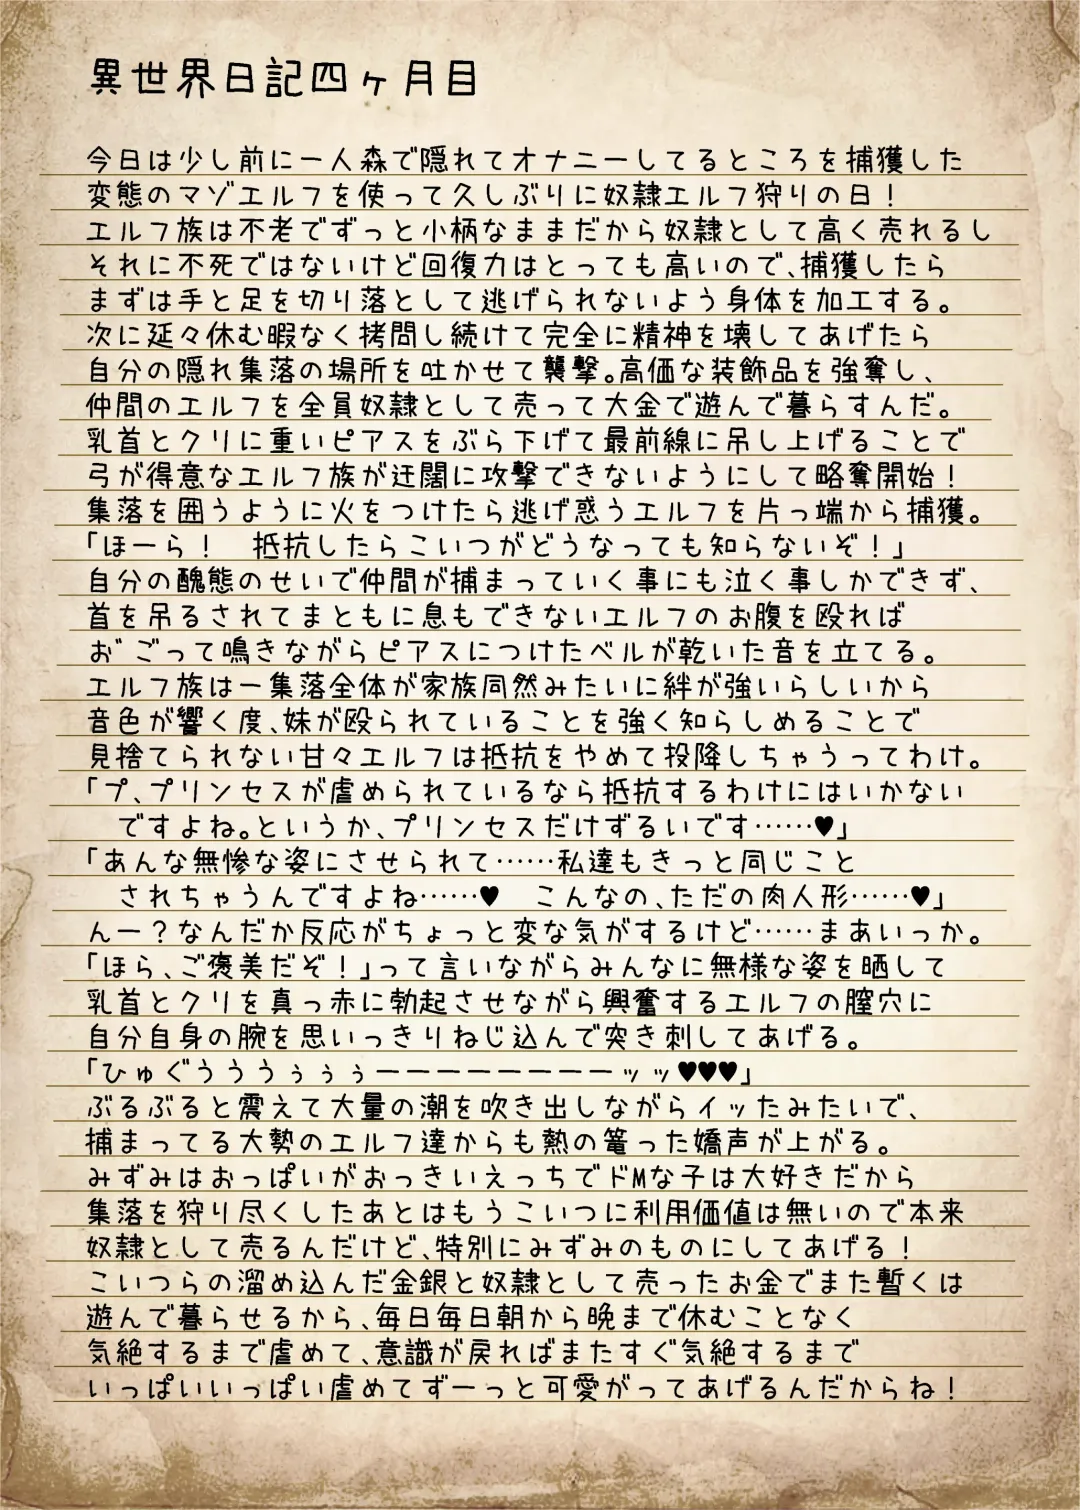 異世界日記四ヶ月目
今日は少し前に一人森で隠れてオナニーしてるところを捕獲した
変態のマゾエルフを使って久しぶりに奴隷エルフ狩りの日！
エルフ族は不老でずっと小柄なままだから奴隷として高く売れるし
それに不死ではないけど回復力はとっても高いので、捕獲したら
まずは手と足を切り落として逃げられないよう身体を加工する。
次に延々休む暇なく拷問し続けて完全に精神を壊してあげたら
自分の隠れ集落の場所を吐かせて襲撃。高価な装飾品を強奪し、
仲間のエルフを全員奴隷として売って大金で遊んで暮らすんだ。
乳首とクリに重いピアスをぶら下げて最前線に吊し上げることで
弓が得意なエルフ族が迂闊に攻撃できないようにして略奪開始！
集落を囲うように火をつけたら逃げ惑うエルフを片っ端から捕獲。
「ほーら！　抵抗したらこいつがどうなっても知らないぞ！」
自分の醜態のせいで仲間が捕まっていく事にも泣く事しかできず、
首を吊るされてまともに息もできないエルフのお腹を殴れば
お゛ごって鳴きながらピアスにつけたベルが乾いた音を立てる。
エルフ族は一集落全体が家族同然みたいに絆が強いらしいから
音色が響く度、妹が殴られていることを強く知らしめることで
見捨てられない甘々エルフは抵抗をやめて投降しちゃうってわけ。
「プ、プリンセスが虐められているなら抵抗するわけにはいかない
ですよね。というか、プリンセスだけずるいです……♥」
「あんな無惨な姿にさせられて……私達もきっと同じこと
されちゃうんですよね……♥　こんなの、ただの肉人形……♥」
んー？なんだか反応がちょっと変な気がするけど……まあいっか。
「ほら、ご褒美だぞ！」って言いながらみんなに無様な姿を晒して
乳首とクリを真っ赤に勃起させながら興奮するエルフの膣穴に
自分自身の腕を思いっきりねじ込んで突き刺してあげる。
「ひゅぐうううぅぅぅーーーーーーーーッッ♥♥♥」
ぶるぶると震えて大量の潮を吹き出しながらイッたみたいで、
捕まってる大勢のエルフ達からも熱の篭った嬌声が上がる。
みずみはおっぱいがおっきいえっちでドMな子は大好きだから
集落を狩り尽くしたあとはもうこいつに利用価値は無いので本来
奴隷として売るんだけど、特別にみずみのものにしてあげる！
こいつらの溜め込んだ金銀と奴隷として売ったお金でまた暫くは
遊んで暮らせるから、毎日毎日朝から晩まで休むことなく
気絶するまで虐めて、意識が戻ればまたすぐ気絶するまで
いっぱいいっぱい虐めてずーっと可愛がってあげるんだからね！